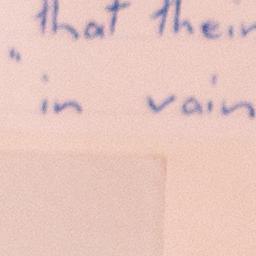 that their
" in vain